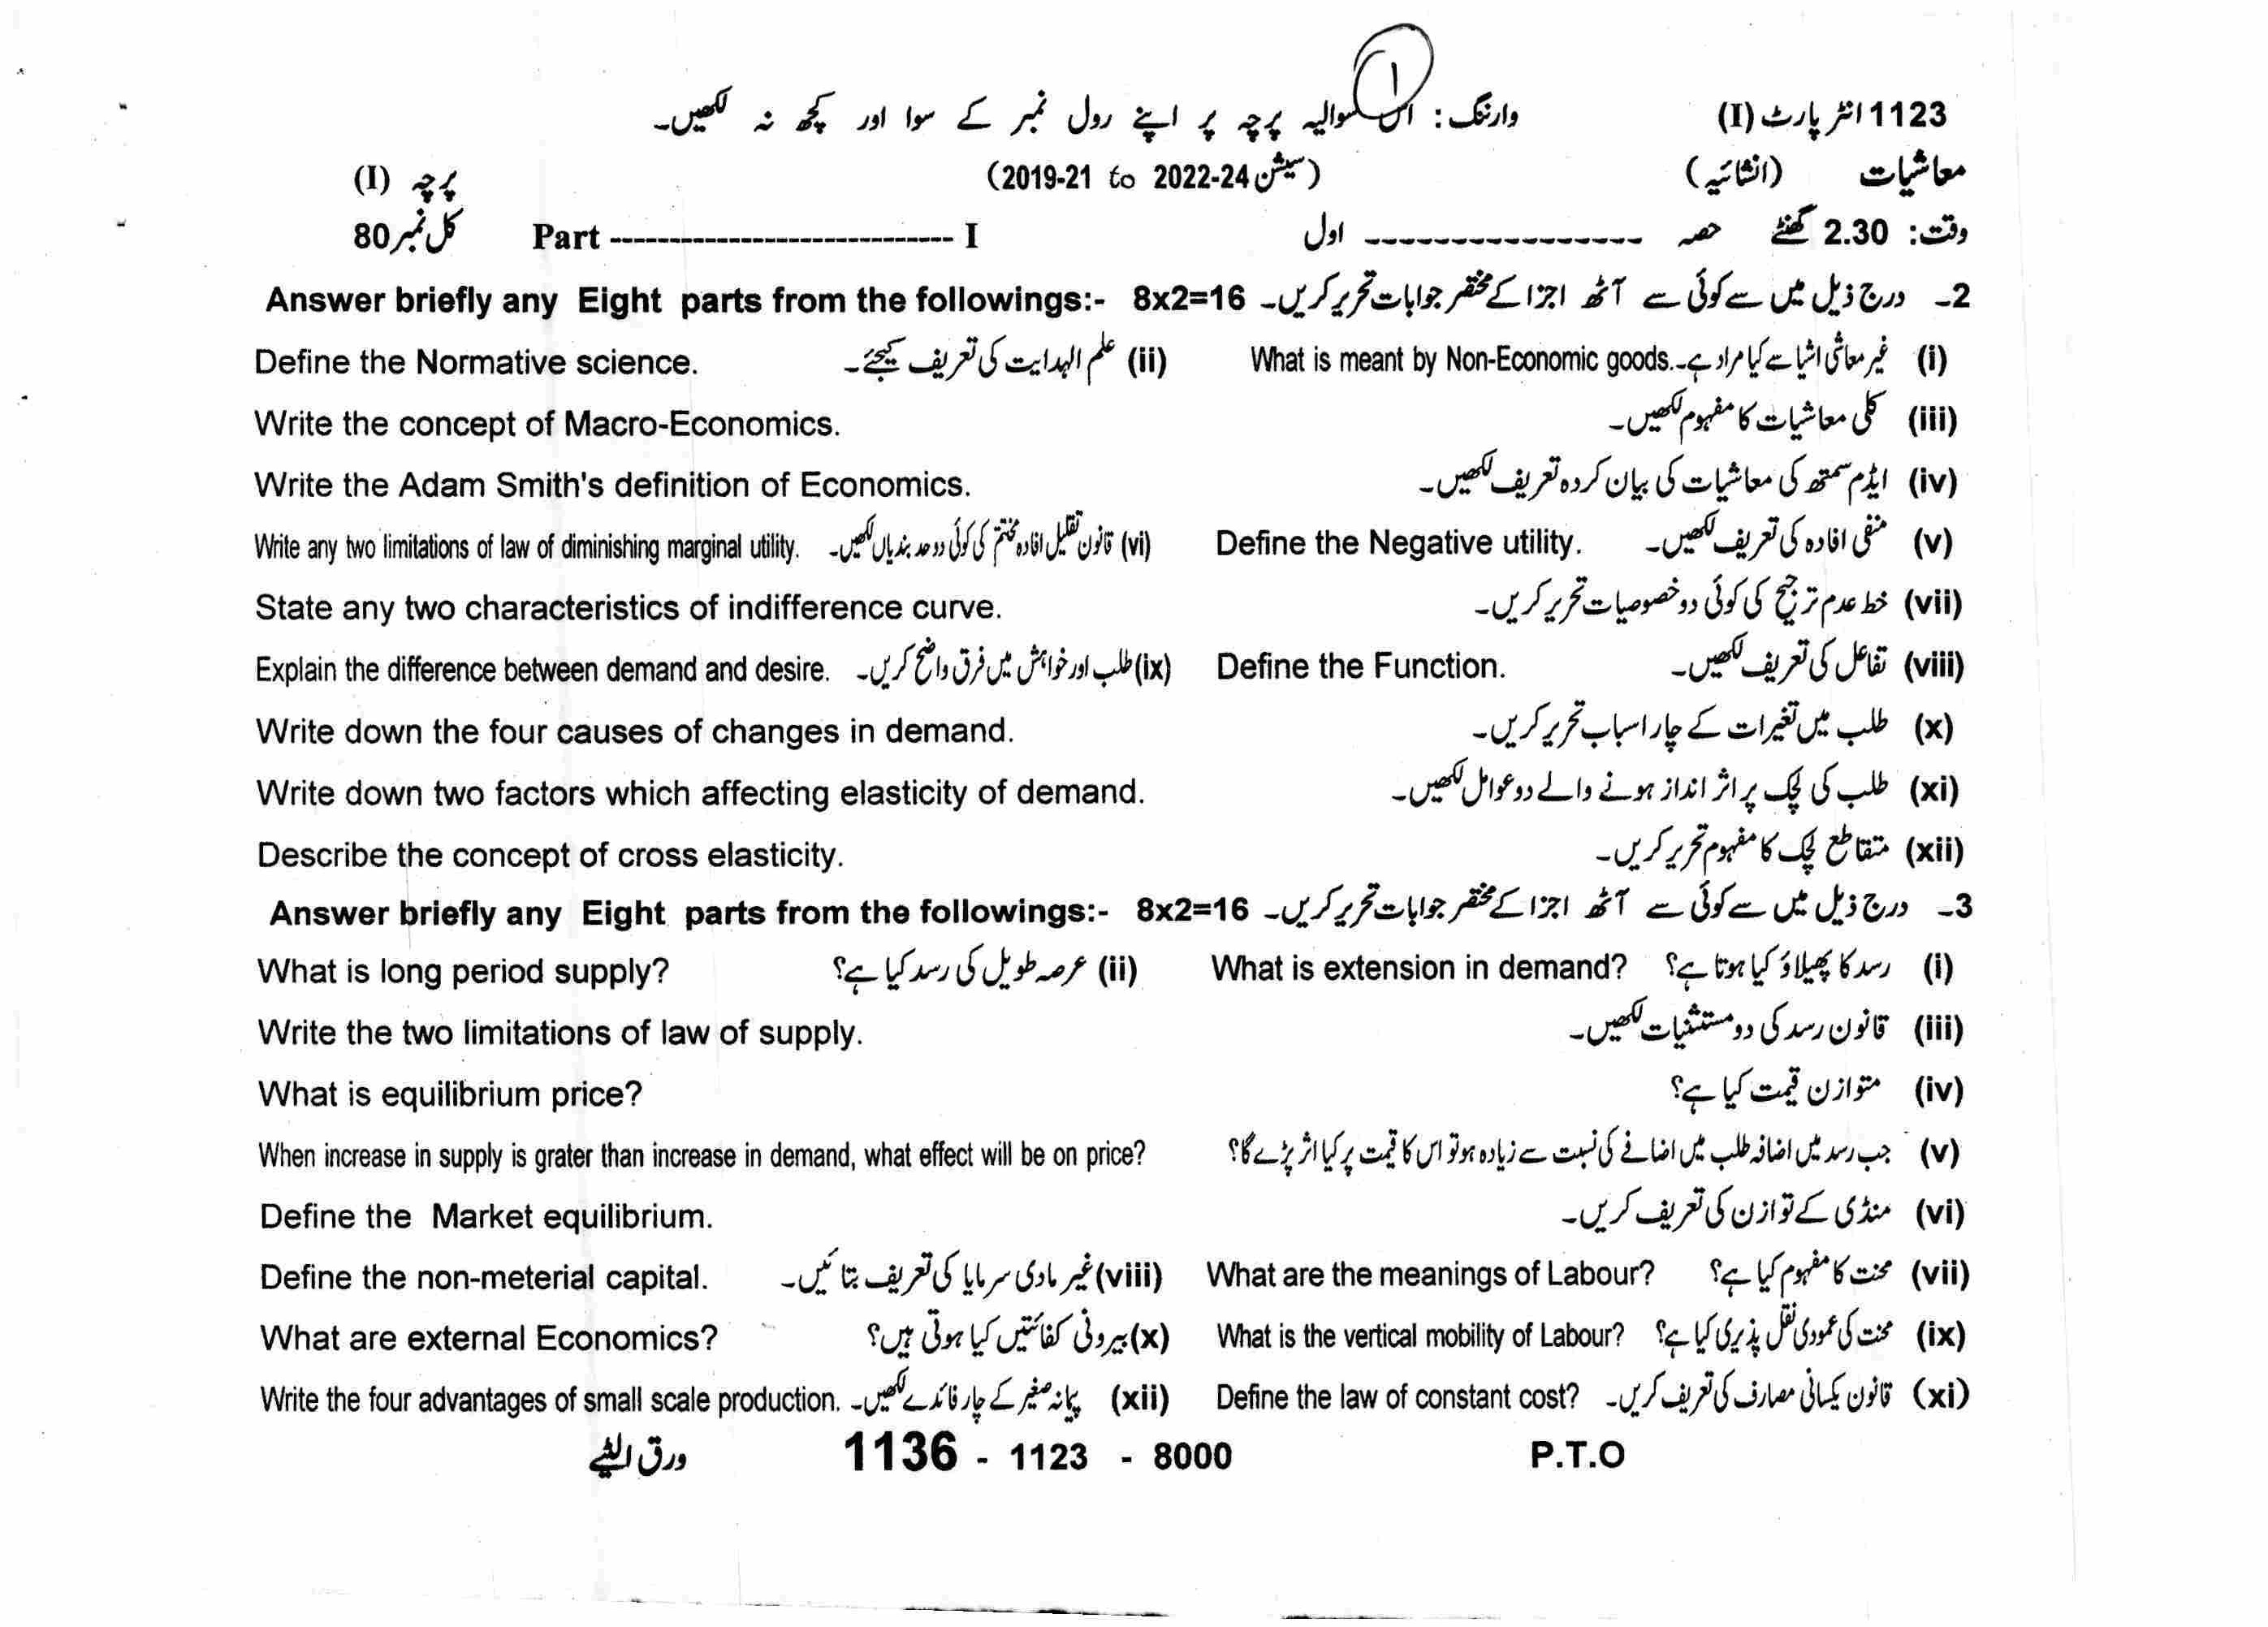 1
1123 انٹر پارٹ (I) وارننگ: اس سوالیہ پرچہ پر اپنے رول نمبر کے سوا اور کچھ نہ لکھیں۔
معاشیات (انشائیہ) (سیشن 2019-21 to 2022-24) پرچہ (I)
وقت: 2.30 گھنٹے حصہ ---------------- اول Part ----------------------------- I کل نمبر 80
2- درج ذیل میں سے کوئی سے آٹھ اجزا کے مختصر جوابات تحریر کریں۔ 8x2=16 Answer briefly any Eight parts from the followings:-
(i) غیر معاشی اشیا سے کیا مراد ہے۔ What is meant by Non-Economic goods. (ii) علم الہدایت کی تعریف کیجئے۔ Define the Normative science.
(iii) کلی معاشیات کا مفہوم لکھیں۔ Write the concept of Macro-Economics.
(iv) ایڈم سمتھ کی معاشیات کی بیان کردہ تعریف لکھیں۔ Write the Adam Smith's definition of Economics.
(v) منفی افادہ کی تعریف لکھیں۔ Define the Negative utility. (vi) قانون تقلیل افادہ مختتم کی کوئی دو حد بندیاں لکھیں۔ Write any two limitations of law of diminishing marginal utility.
(vii) خط عدم ترجیح کی کوئی دو خصوصیات تحریر کریں۔ State any two characteristics of indifference curve.
(viii) تفاعل کی تعریف لکھیں۔ Define the Function. (ix) طلب اور خواہش میں فرق واضح کریں۔ Explain the difference between demand and desire.
(x) طلب میں تغیرات کے چار اسباب تحریر کریں۔ Write down the four causes of changes in demand.
(xi) طلب کی لچک پر اثر انداز ہونے والے دو عوامل لکھیں۔ Write down two factors which affecting elasticity of demand.
(xii) متقاطع لچک کا مفہوم تحریر کریں۔ Describe the concept of cross elasticity.
3- درج ذیل میں سے کوئی سے آٹھ اجزا کے مختصر جوابات تحریر کریں۔ 8x2=16 Answer briefly any Eight parts from the followings:-
(i) رسد کا پھیلاؤ کیا ہوتا ہے؟ What is extension in demand? (ii) عرصہ طویل کی رسد کیا ہے؟ What is long period supply?
(iii) قانون رسد کی دو مستثنیات لکھیں۔ Write the two limitations of law of supply.
(iv) متوازن قیمت کیا ہے؟ What is equilibrium price?
(v) جب رسد میں اضافہ طلب میں اضافے کی نسبت سے زیادہ ہو تو اس کا قیمت پر کیا اثر پڑے گا؟ When increase in supply is grater than increase in demand, what effect will be on price?
(vi) منڈی کے توازن کی تعریف کریں۔ Define the Market equilibrium.
(vii) محنت کا مفہوم کیا ہے؟ What are the meanings of Labour? (viii) غیر مادی سرمایا کی تعریف بتائیں۔ Define the non-meterial capital.
(ix) محنت کی عمودی نقل پذیری کیا ہے؟ What is the vertical mobility of Labour? (x) بیرونی کفائتیں کیا ہوتی ہیں؟ What are external Economics?
(xi) قانون یکسانی مصارف کی تعریف کریں۔ Define the law of constant cost? (xii) پیمانہ صغیر کے چار فائدے لکھیں۔ Write the four advantages of small scale production.
ورق الٹیے 1136 - 1123 - 8000 P.T.O